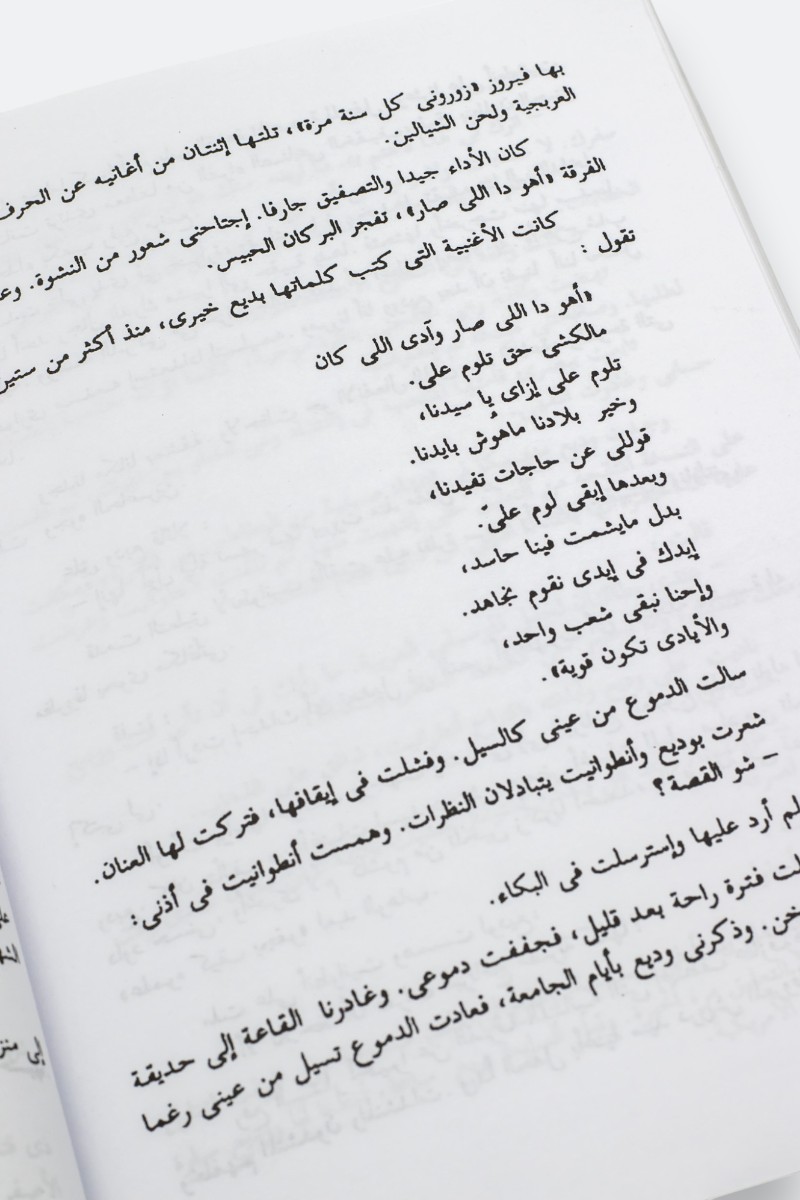 بها فيروز «زورونى كل سنة مرة»، تلتها إثنتان من أغانيه عن الحرف
العربجية ولحن الشيالين.
كان الأداء جيدا والتصفيق جارفا. إجتاحنى شعور من النشوة.
الفرقة «أهو دا اللى صار»، تفجر البركان الحبيس.
كانت الأغنية التى كتب كلماتها بديع خيرى، منذ أكثر من ستين
تقول :
«أهو دا اللى صار وآدى اللى كان
مالكشى حق تلوم على.
تلوم على إزاى يا سيدنا،
وخير بلادنا ماهوش بايدنا.
قوللى عن حاجات تفيدنا،
وبعدها إبقى لوم علىّ.
بدل مايشمت فينا حاسد،
إيدك فى إيدى نقوم نجاهد.
وإحنا نبقى شعب واحد،
والأيادى تكون قوية».
سالت الدموع من عينى كالسيل. وفشلت فى إيقافها، فتركت لها العنان.
شعرت بوديع وأنطوانيت يتبادلان النظرات. وهمست أنطوانيت فى أذنى:
– شو القصة؟
لم أرد عليها وإسترسلت فى البكاء.
فترة راحة بعد قليل، فجففت دموعى. وغادرنا القاعة إلى حديقة
وذكرنى وديع بأيام الجامعة، فعادت الدموع تسيل من عينى رغما